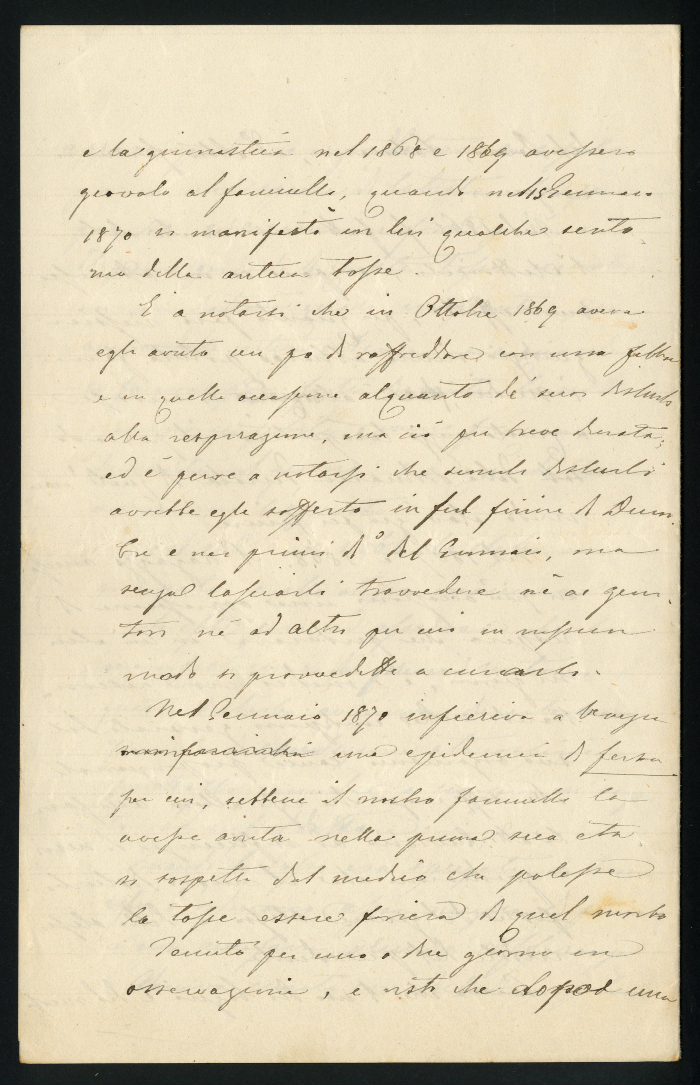 e la ginnastica nel 1868 e 1869 avessero
giovato al fanciullo, quando nel 15 Gennaio
1870 si manifestò in lui qualche sento
mo della antica tosse.
È a notarsi che in Ottobre 1869 aveva
egli avuto un po di raffreddore con una febbre
e in quella occasione alquanto de' suoi disturbi
alla respirazione, ma ciò per breve durata;
ed è pure a notarsi che simili disturbi
avrebbe egli sofferto in sul finire di Decem
bre e nei primi dì del Gennaio, ma
senza lasciarli travvedere nè ai geni
tori nè ad altri per cui in nessun
modo si provvedette a curarlo.
Nel Gennaio 1870 infieriva a
una epidemia di fersa
per cui, sebbene il nostro fanciullo la
avesse avuta nella prima sua età
si sospettò dal medico che potesse
la tosse essere foriera di quel morbo
Tenuto per uno o due giorni in
osservazione, e visto che dopo una